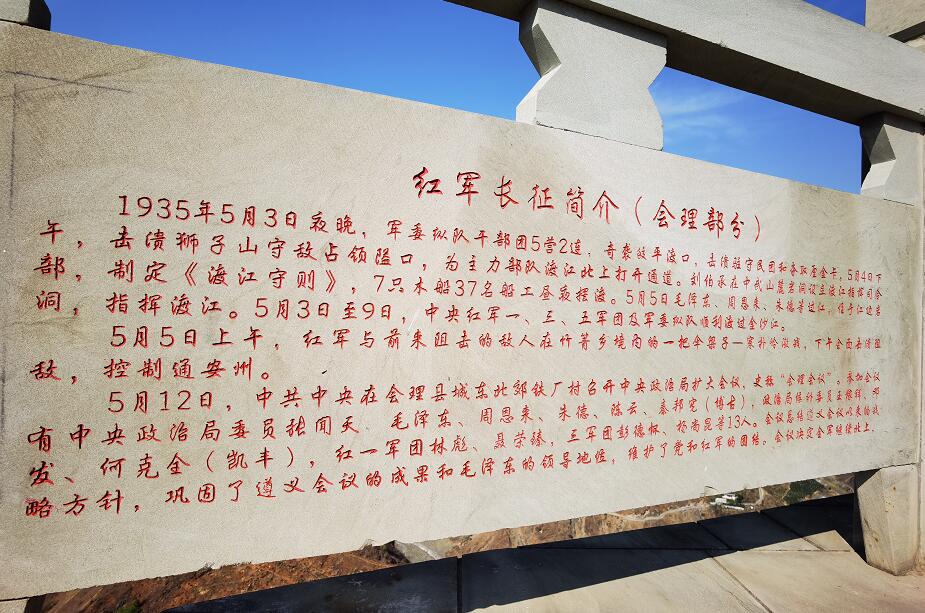 红军长征简介（会理部分）
1935年5月3日夜晚，军委纵队干部团5营2连，奇袭皎平渡口，击溃驻守民团和各取厘金卡，5月4日下
午，击溃狮子山守敌占领隘口，为主力部队渡江北上打开通道。刘伯承在中武山麓岩洞设立渡江指挥司令
部，制定《渡江守则》，7只木船37名船工昼夜摆渡。5月5日毛泽东、周恩来、朱德等过江，住于江边岩
洞，指挥渡江。5月3日至9日，中央红军一、三、五军团及军委纵队顺利渡过金沙江。
5月5日上午，红军与前来阻击的敌人在竹箐乡境内的一把伞梁子一寨补伶激战，下午全面击溃阻
敌，控制通安州。
5月12日，中共中央在会理县城东北郊铁厂村召开中央政治局扩大会议，史称“会理会议”。参加会议
有中央政治局委员张闻天、毛泽东、周恩来、朱德、陈云、秦邦宪（博古），政治局候补委员王稼祥、邓
发、何克全（凯丰），红一军团林彪、聂荣臻，三军团彭德怀、杨尚昆等13人。会议总结遵义会议以来的战
略方针，巩固了遵义会议的成果和毛泽东的领导地位，维护了党和红军的团结。会议决定全军继续北上。